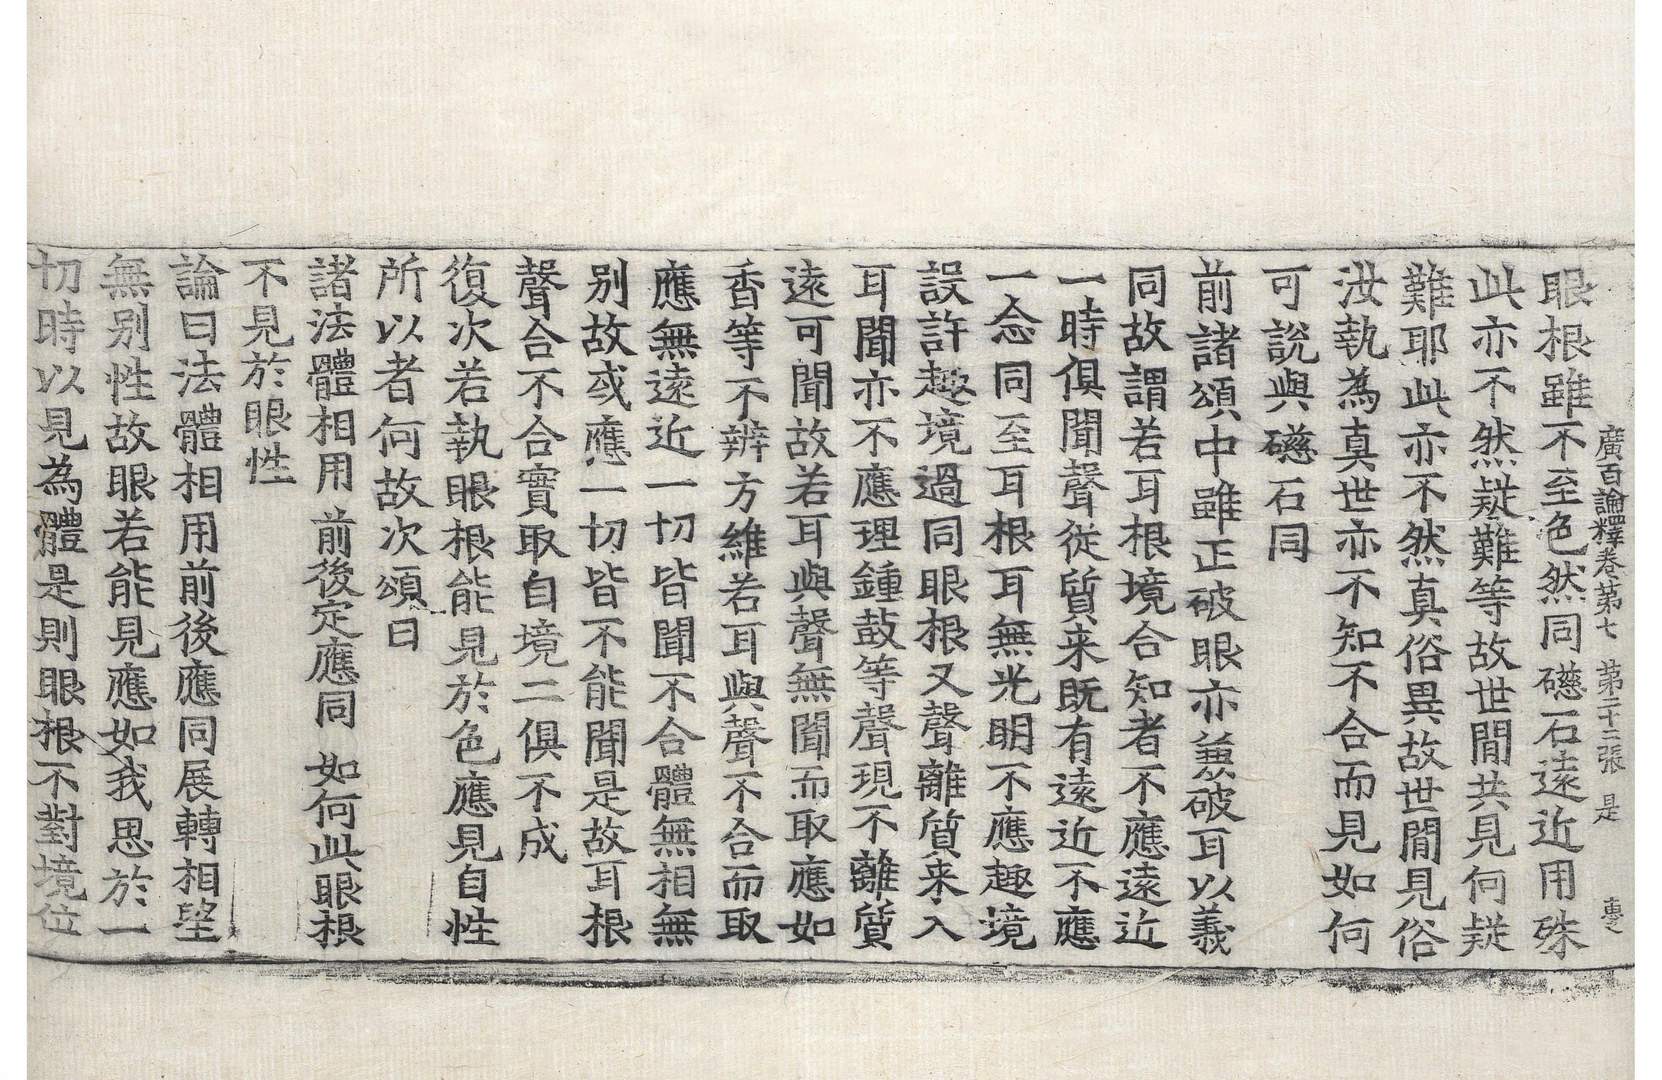 廣百論釋卷第七 第二十二張 是 惠之
眼根雖不至色然同礠石遠近用殊
此亦不然疑難等故世間共見何疑
難耶此亦不然真俗異故世間見俗
汝執為真世亦不知不合而見如何
可說與礠石同
前諸頌中雖正破眼亦兼破耳以義
同故謂若耳根境合知者不應遠近
一時俱聞聲從質来既有遠近不應
一念同至耳根耳無光明不應趣境
設許趣境過同眼根又聲離質来入
耳聞亦不應理鍾鼓等聲現不離質
遠可聞故若耳與聲無聞而取應如
香等不辨方維若耳與聲不合而取
應無遠近一切皆聞不合體無相無
别故或應一切皆不能聞是故耳根
聲合不合實取自境二俱不成
復次若執眼根能見於色應見自性
所以者何故次頌曰
諸法體相用 前後定應同 如何此眼根
不見於眼性
論曰法體相用前後應同展轉相望
無别性故眼若能見應如我思於一
切時以見為體是則眼根不對境位